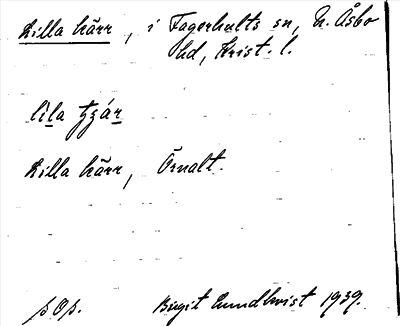 Lilla kärr, i Fagerhults sn, N. Åsbo
hd, Krist. l.
lìla tzár
Lilla kärr, Örnalt.
p Op. Birgit Lundkvist 1939.